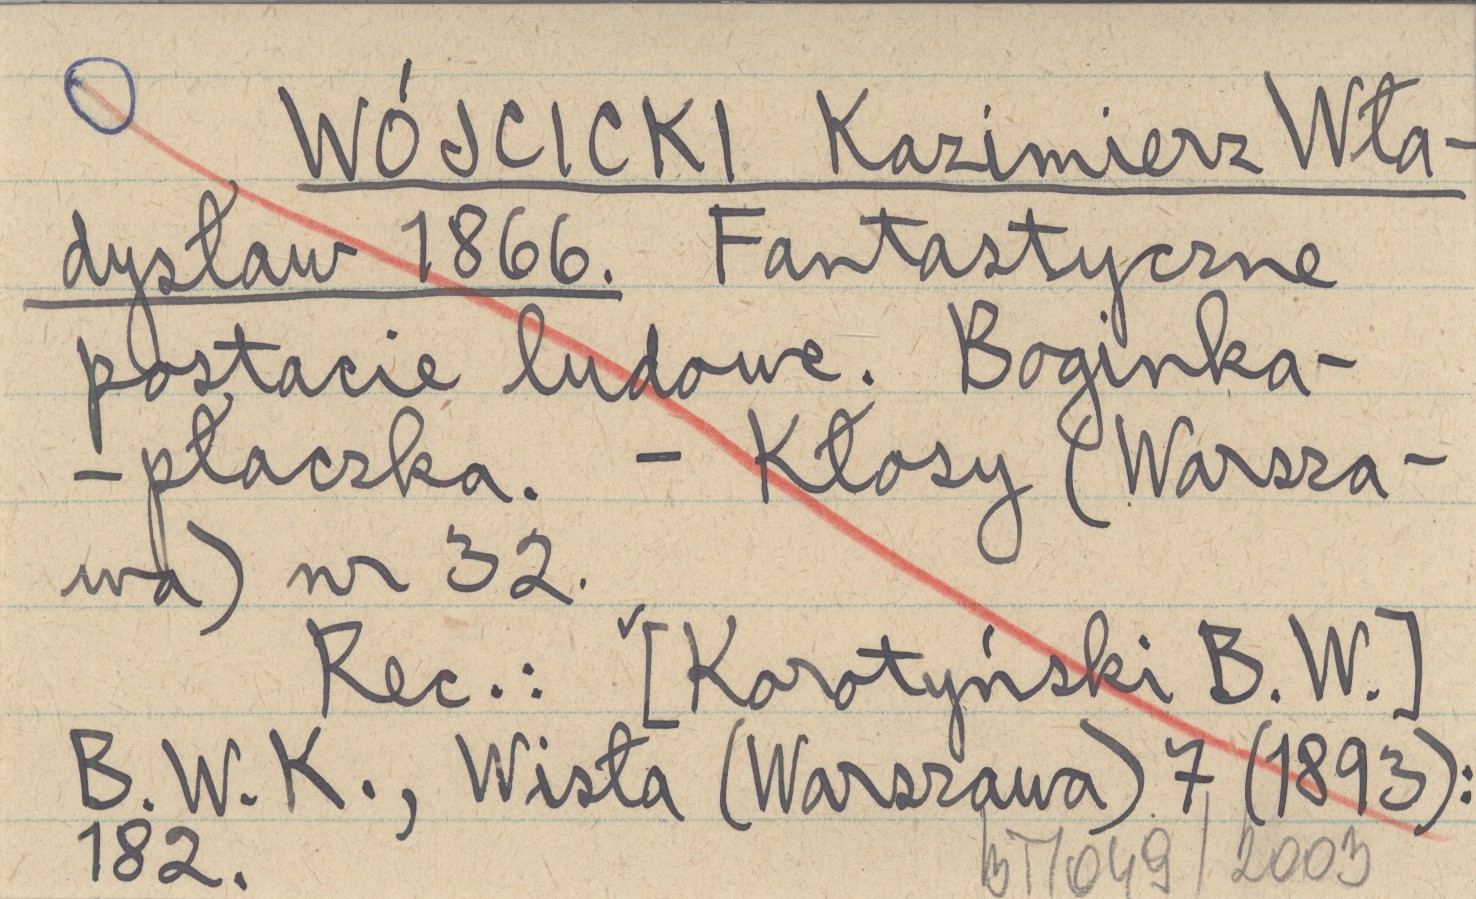 WÓJCICKI Kazimierz Wła-
dysław 1866. Fantastyczne
postacie ludowe. Boginka-
-płaczka. - Kłosy (Warsza-
wa) nr 32.
Rec.: [Korotyński B.W.]
B.W.K., Wisła (Warszawa) 7 (1893):
182.
049/2003